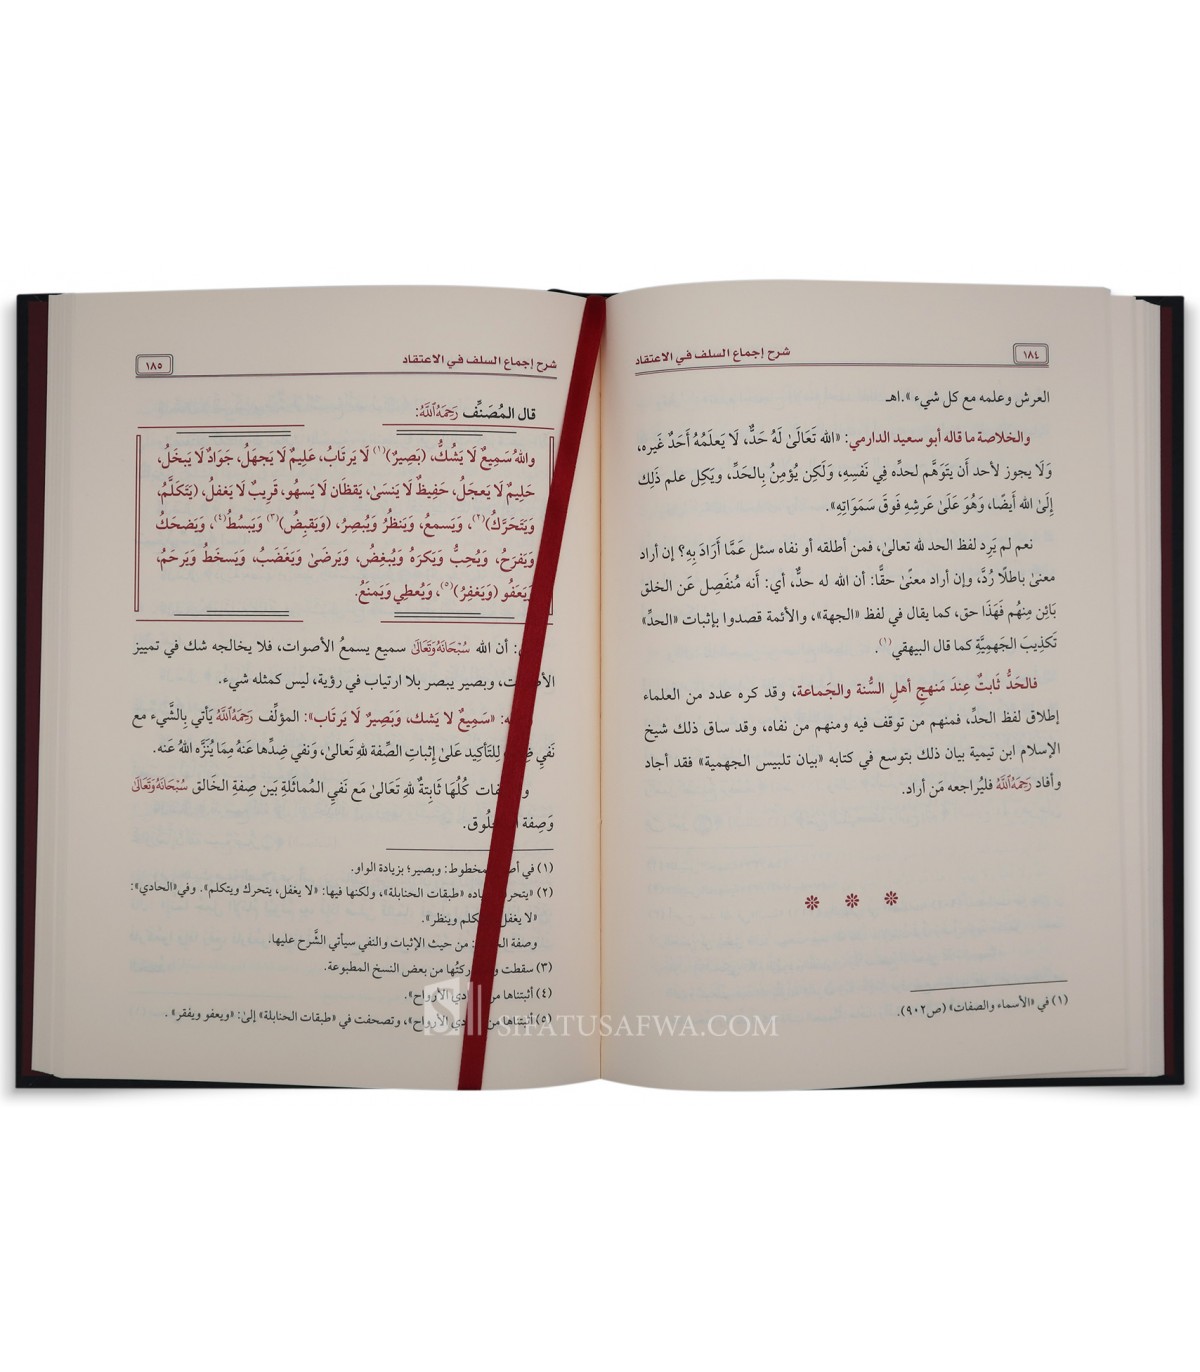 ١٨٤
شرح إجماع السلف في الاعتقاد
العرش وعلمه مع كل شيء».اهـ
والخلاصة ما قاله أبو سعيد الدارمي: «الله تَعَالَىٰ لَهُ حَدٌّ، لَا يَعلَمُهُ أَحَدٌ غَيره،
وَلَا يجوز لأحد أَن يَتَوَهَّم لحدِّه فِي نَفسِهِ، وَلَكِن يُؤمِنُ بِالحَدِّ، ويَكِل علم ذَلِك
إِلَىٰ الله أَيضًا، وَهُوَ عَلَىٰ عَرشِهِ فَوقَ سَمَوَاتِهِ».
نعم لم يَرِد لفظ الحد لله تعالىٰ، فمن أطلقه أو نفاه سئل عَمَّا أَرَادَ بِهِ؟ إن أراد
معنىٰ باطلًا رُدَّ، وإن أراد معنًىٰ حقًّا: أن الله له حدٌّ، أي: أَنه مُنفَصِل عَن الخلق
بَائِن مِنهُم فَهَذَا حق، كما يقال في لفظ «الجهة»، والأئمة قصدوا بإثبات «الحدِّ»
تَكذِيبَ الجَهمِيَّةِ كما قال البيهقي(١).
فالحَدُّ ثَابتٌ عِندَ مَنهجِ أهلِ السُّنة والجَماعة، وقد كره عدد من العلماء
إطلاق لفظ الحدِّ، فمنهم من توقف فيه ومنهم من نفاه، وقد ساق ذلك شيخ
الإسلام ابن تيمية بيان ذلك بتوسع في كتابه «بيان تلبيس الجهمية» فقد أجاد
وأفاد رَحِمَهُ ٱللَّهُ فليُراجعه مَن أراد.
(١) في «الأسماء والصفات» (ص٩٠٢).
شرح إجماع السلف في الاعتقاد
١٨٥
قال المُصَنِّف رَحِمَهُ ٱللَّهُ:
واللهُ سَمِيعٌ لَا يَشُكُّ، (بَصِيرٌ)(١) لَا يَرتَابُ، عَلِيمٌ لَا يَجهَلُ، جَوَادٌ لَا يَبخَلُ،
حَلِيمٌ لَا يَعجَلُ، حَفِيظٌ لَا يَنسَىٰ، يَقظَان لَا يَسهُو، قَرِيبٌ لَا يَغفلُ، (يَتَكَلَّمُ،
وَيَتَحَرَّكُ)(٢)، وَيَسمعُ، وَيَنظُرُ وَيُبصِرُ، (وَيَقبِضُ)(٣) وَيَبسُطُ(٤)، وَيَضحَكُ
وَيَفرَحُ، وَيُحِبُّ وَيَكرَهُ وَيُبغِضُ، وَيَرضَىٰ وَيَغضَبُ، وَيَسخَطُ وَيَرحَمُ،
وَيَعفُو (وَيَغفِرُ)(٥)، وَيُعطِي وَيَمنَعُ.
أن الله سُبْحَانَهُ وَتَعَالَىٰ سميع يسمعُ الأصوات، فلا يخالجه شك في تمييز
وبصير يبصر بلا ارتياب في رؤية، ليس كمثله شيء.
«سَمِيعٌ لا يَشك، وَبَصِيرٌ لَا يَرتَاب»: المؤلِّف رَحِمَهُ ٱللَّهُ يَأتي بِالشَّيء مع
نَفيِ لِلتَأكِيد عَلىٰ إثباتِ الصِّفة للهِ تَعالىٰ، وَنَفي ضِدِّها عَنهُ مِمَا يُنَزَّه اللهُ عَنه.
كُلُهَا ثَابِتةٌ للهِ تَعَالَىٰ مَع نَفيِ المُماثَلةِ بَين صِفةِ الخَالقِ سُبْحَانَهُ وَتَعَالَىٰ
وَصِفة
(١) في المخطوط: وبصير؛ بزيادة الواو.
(٢) «طبقات الحنابلة»، ولكنها فيها: «لا يغفل، يتحرك ويتكلم». وفي «الحادي»:
«لا يغفل وينظر».
وصفة من حيث الإثبات والنفي سيأتي الشَّرح عليها.
(٣) سقطت من بعض النسخ المطبوعة.
(٤) أثبتناها الأرواح».
(٥) أثبتناها الأرواح»، وتصحفت في «طبقات الحنابلة» إلىٰ: «ويعفو ويفقر».
SIFATUSAFWA.COM